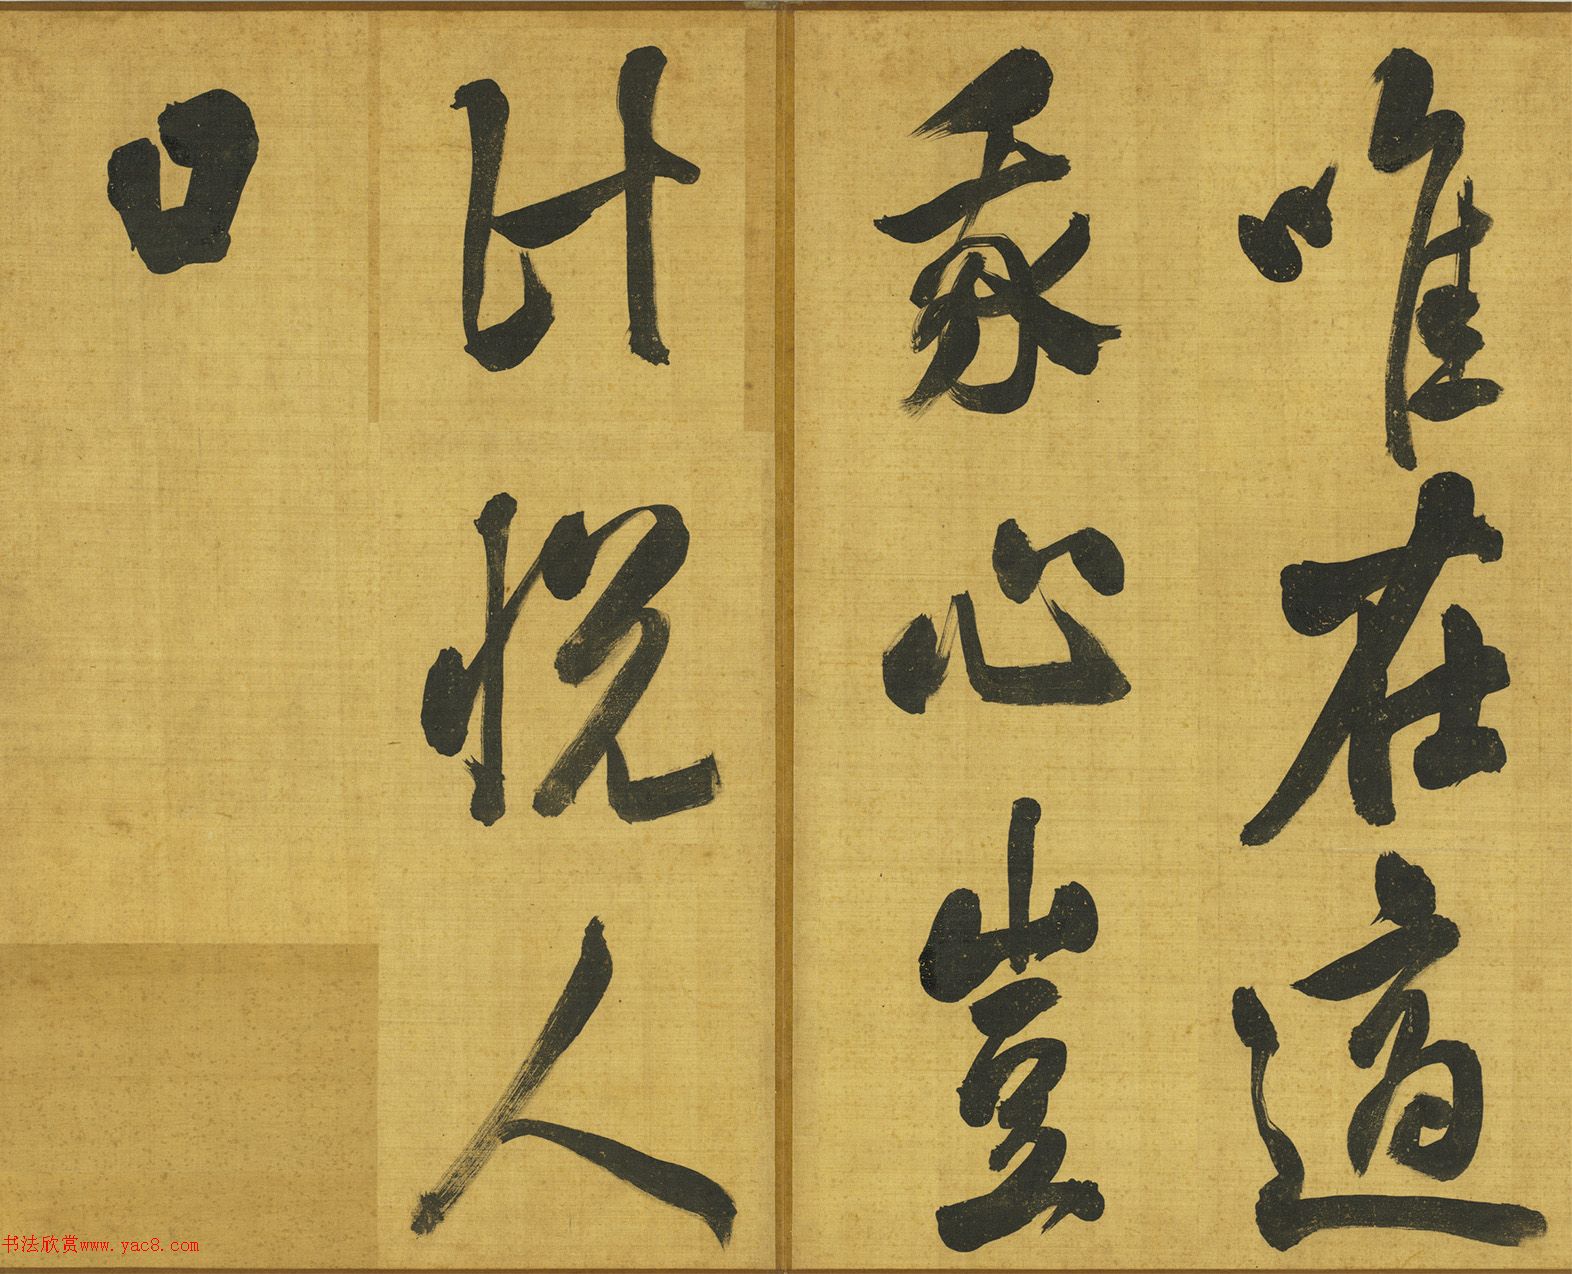 唯在適
我心豈
計悅人
口
书法欣赏www.yac8.com